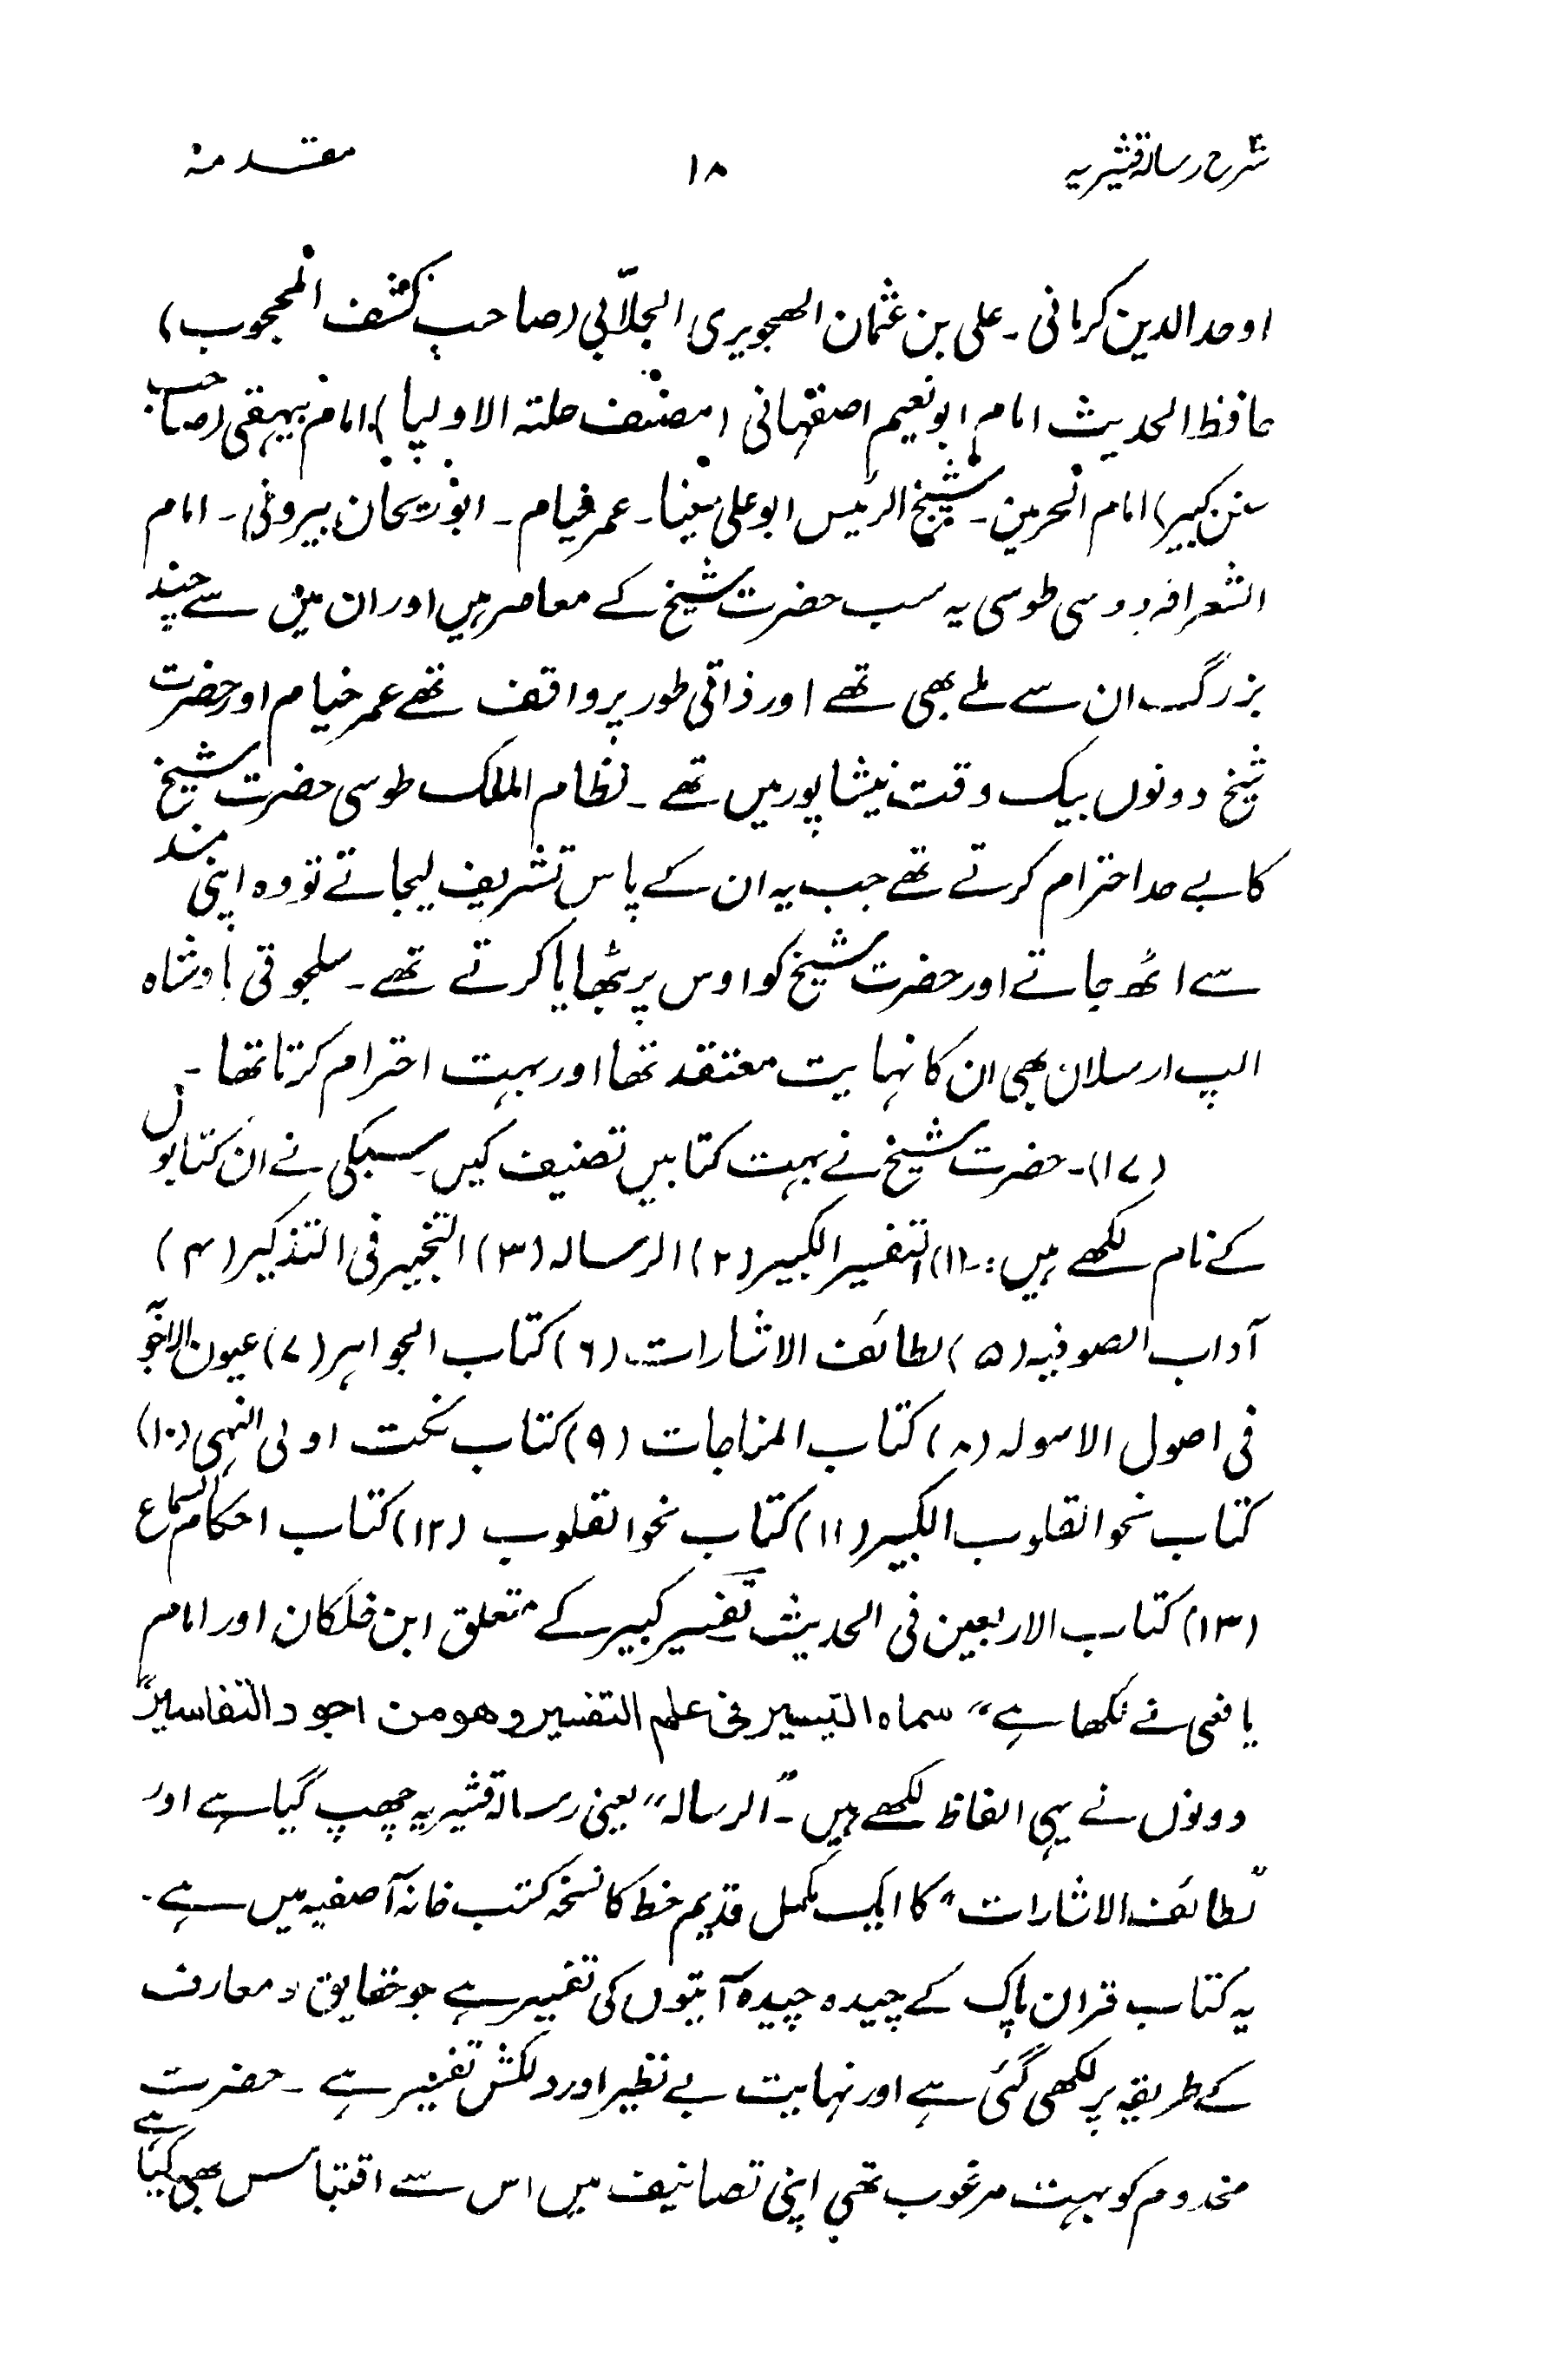 شرح رسالہ قشیریہ ۱۸ مقدمہ
اوحد الدین کرمانی۔ علی بن عثمان الھجویری الجلّابی (صاحب کشف المحجوب)
حافظ الحدیث امام ابونعیم اصفہانی (مصنف حلتہ الاولیا) امام بیہقی (صاحب
سنن کبیر) امام الحرمین۔ شیخ الرئیس ابو علی سینا۔ عمر خیام۔ ابوریحان بیرونی۔ امام
الشعرا فردوسی طوسی یہ سب حضرت شیخ کے معاصر ہیں اور ان میں سے چند
بزرگ ان سے ملے بھی تھے اور ذاتی طور پر واقف تھے عمر خیام اور حضرت
شیخ دونوں بیک وقت نیشاپور میں تھے۔ نظام الملک طوسی حضرت شیخ
کا بے حد احترام کرتے تھے جب یہ ان کے پاس تشریف لیجاتے تو وہ اپنی مسند
سے اٹھ جاتے اور حضرت شیخ کو اوس پر بٹھایا کرتے تھے۔ سلجوقی بادشاہ
الپ ارسلان بھی ان کا نہایت معتقد تھا اور بہت احترام کرتا تھا۔
(۱۷)۔ حضرت شیخ نے بہت کتابیں تصنیف کیں۔ سبکی نے ان کتابوں
کے نام لکھے ہیں:۔ (۱) التفسیر الکبیر (۲) الرسالہ (۳) التحبیر فی التذکیر (۴)
آداب الصوفیہ (۵) لطائف الاشارات (۶) کتاب الجواہر (۷) عیون الاجوبہ
فی اصول الاسولہ (۸) کتاب المناجات (۹) کتاب نکت اولی النہی (۱۰)
کتاب نحو القلوب الکبیر (۱۱) کتاب نحو القلوب (۱۲) کتاب احکام السماع
(۱۳) کتاب الاربعین فی الحدیث تفسیر کبیر کے متعلق ابن خلکان اور امام
یافعی نے لکھا ہے "سماہ التیسیر فی علم التفسیر وھو من اجود التفاسیر"
دونوں نے یہی الفاظ لکھے ہیں۔ "الرسالہ" یعنی رسالہ قشیریہ چھپ گیا ہے اور
"لطائف الاشارات" کا ایک مکمل قدیم خط کا نسخہ کتب خانہ آصفیہ میں ہے۔
یہ کتاب قران پاک کے چیدہ چیدہ آیتوں کی تفسیر ہے جو حقایق و معارف
کے طریقہ پر لکھی گئی ہے اور نہایت بے نظیر اور دلکش تفسیر ہے۔ حضرت
مخدوم کو بہت مرغوب تھی اپنی تصانیف میں اس سے اقتباس بھی کیا ہے